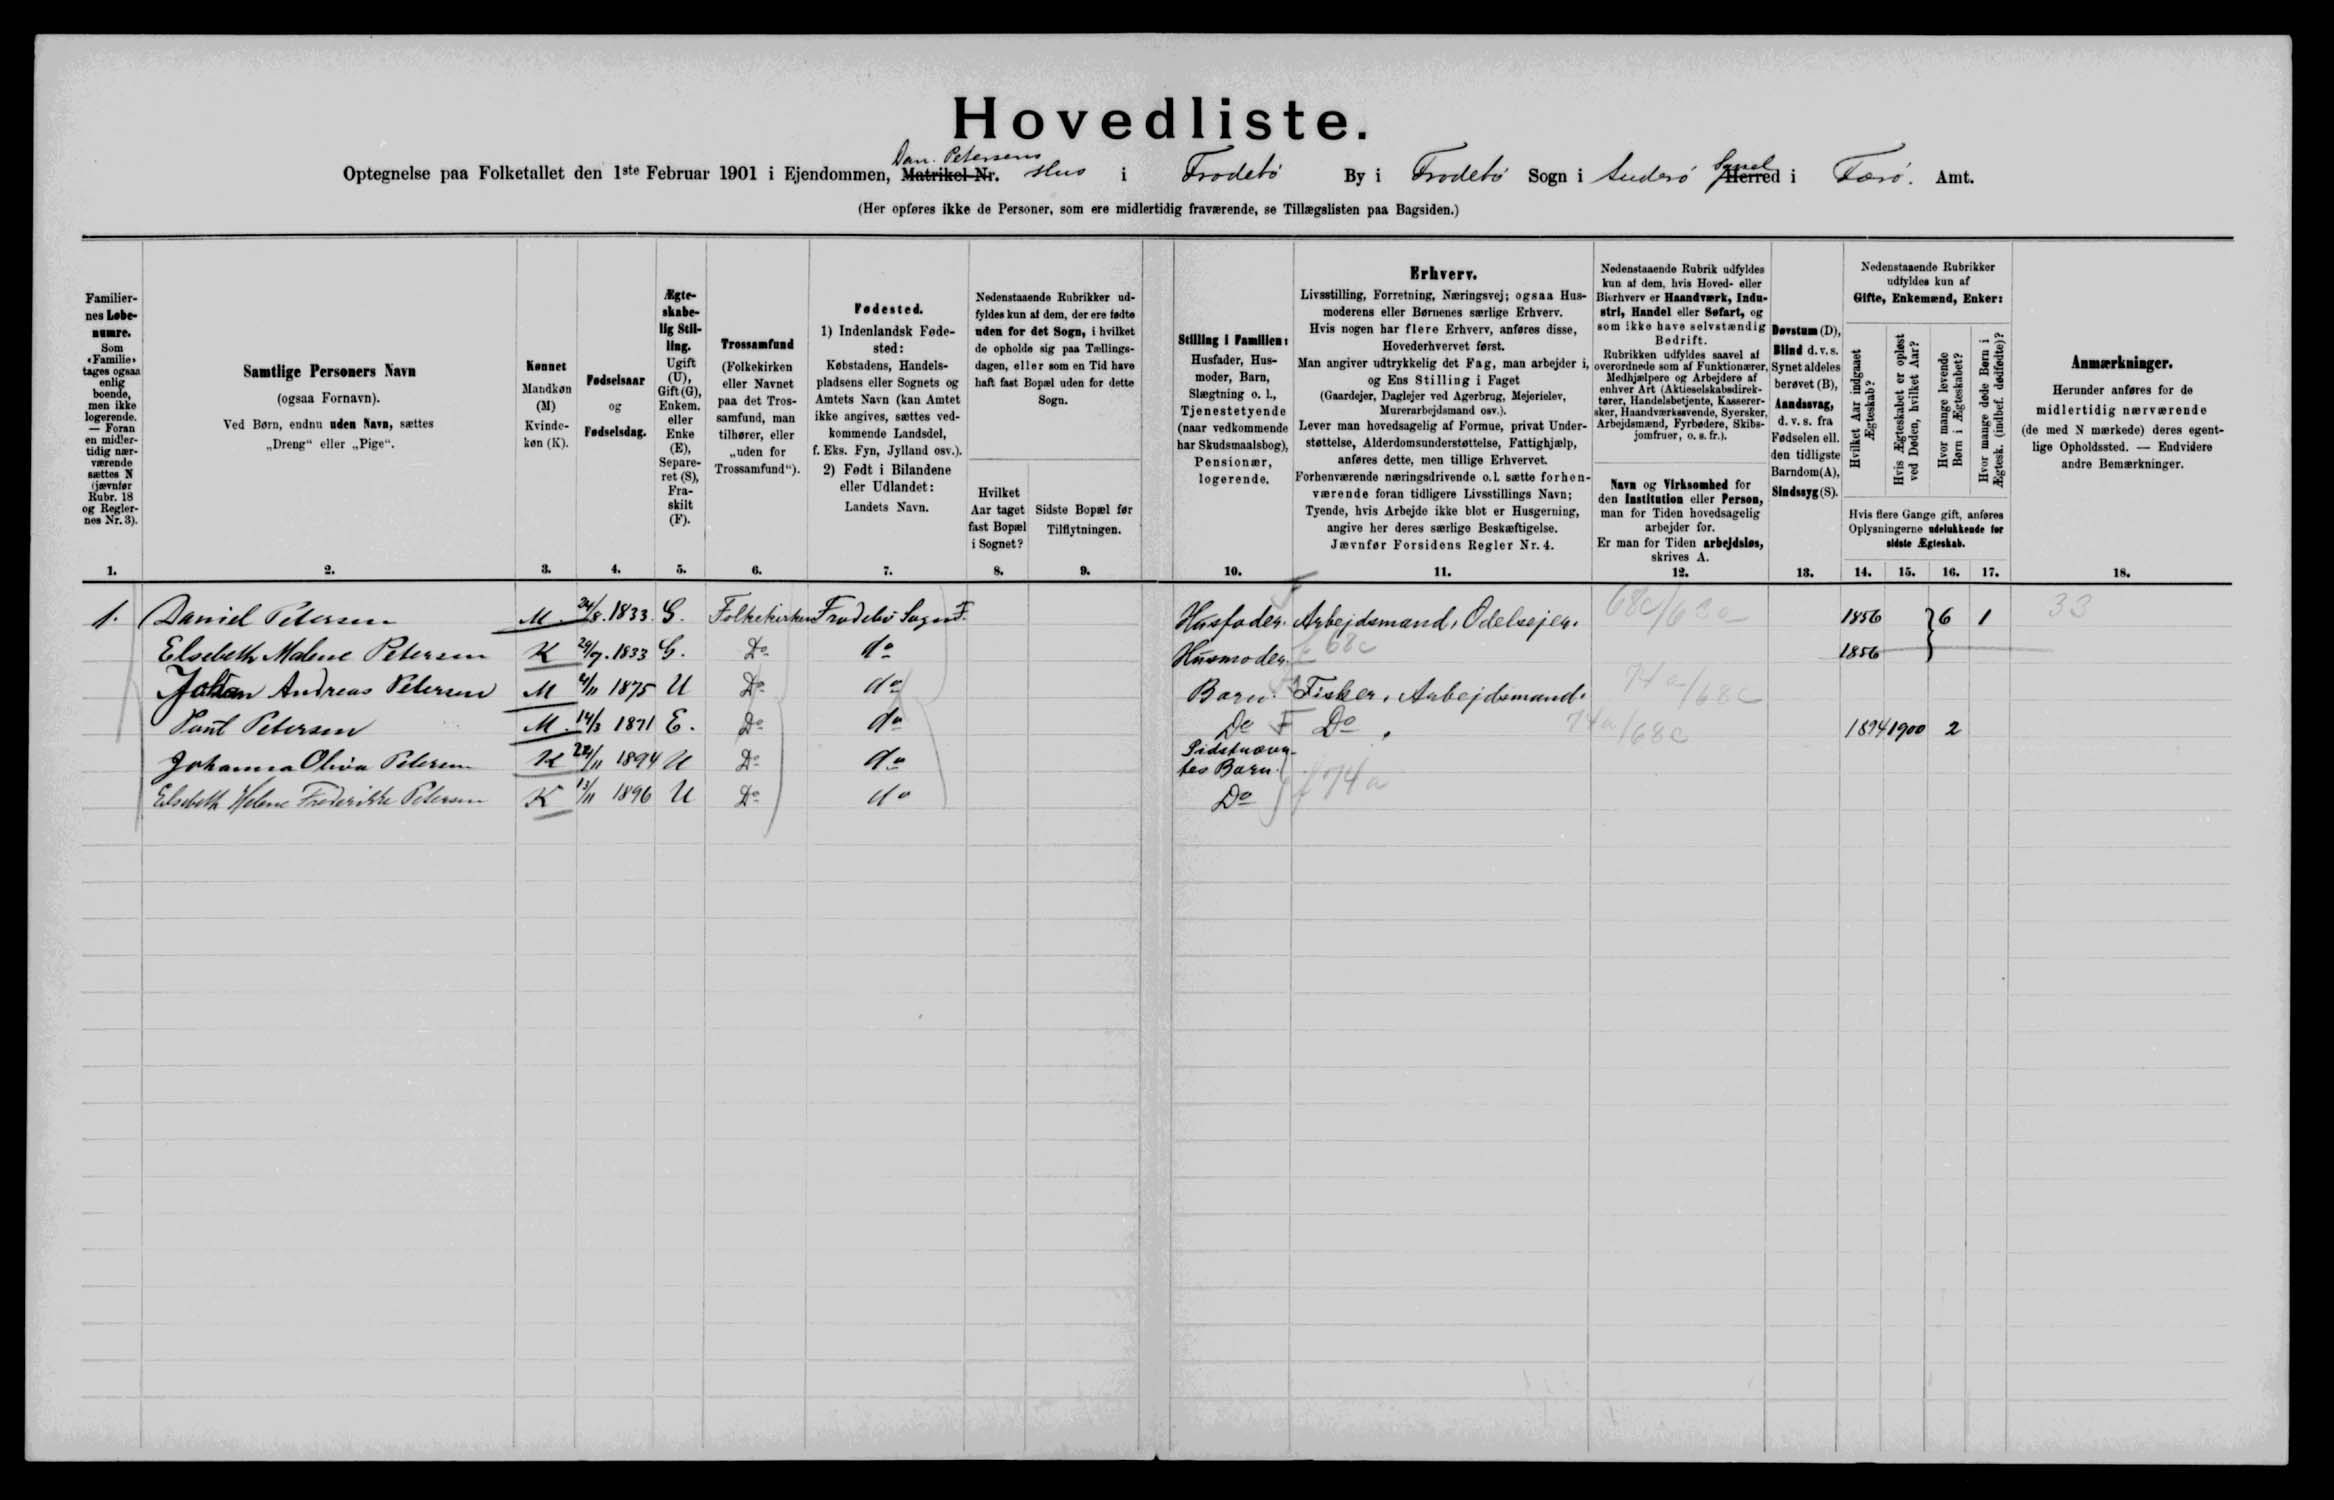 Hovedliste.
Dan. Petersens
Optegnelse paa Folketallet den 1ste Februar 1901 i Ejendommen, Matrikel-Nr. Hus i Frodebö By i Frodebö Sogn i Suderö Syssel Herred i Færö. Amt.
(Her opføres ikke de Personer, som ere midlertidig fraværende, se Tillægslisten paa Bagsiden.)
Familiernes Løbenumre.
Som «Familie» tages ogsaa enlig boende, men ikke logerende. — Foran en midlertidig nærværende sættes N (jævnfør Rubr. 18 og Reglernes Nr. 3).
Samtlige Personers Navn
(ogsaa Fornavn).
Ved Børn, endnu uden Navn, sættes
„Dreng“ eller „Pige“.
Kønnet
Mandkøn (M)
Kvindekøn (K).
Fødselsaar
og
Fødselsdag.
Ægteskabelig Stilling.
Ugift (U), Gift (G), Enkem. eller Enke (E), Separeret (S), Fraskilt (F).
Trossamfund
(Folkekirken eller Navnet paa det Trossamfund, man tilhører, eller „uden for Trossamfund“).
Fødested.
1) Indenlandsk Fødested:
Købstadens, Handelspladsens eller Sognets og Amtets Navn (kan Amtet ikke angives, sættes vedkommende Landsdel, f. Eks. Fyn, Jylland osv.).
2) Født i Bilandene eller Udlandet:
Landets Navn.
Nedenstaaende Rubrikker udfyldes kun af dem, der ere fødte uden for det Sogn, i hvilket de opholde sig paa Tællingsdagen, eller som en Tid have haft fast Bopæl uden for dette Sogn.
Hvilket Aar taget fast Bopæl i Sognet?
Sidste Bopæl før Tilflytningen.
Stilling i Familien:
Husfader, Husmoder, Barn, Slægtning o. l., Tjenestetyende (naar vedkommende har Skudsmaalsbog), Pensionær, logerende.
Erhverv.
Livsstilling, Forretning, Næringsvej; ogsaa Husmoderens eller Børnenes særlige Erhverv.
Hvis nogen har flere Erhverv, anføres disse, Hovederhvervet først.
Man angiver udtrykkelig det Fag, man arbejder i, og Ens Stilling i Faget
(Gaardejer, Daglejer ved Agerbrug, Mejerielev, Murerarbejdsmand osv.).
Lever man hovedsagelig af Formue, privat Understøttelse, Alderdomsunderstøttelse, Fattighjælp, anføres dette, men tillige Erhvervet.
Forhenværende næringsdrivende o.l. sætte forhenværende foran tidligere Livsstillings Navn;
Tyende, hvis Arbejde ikke blot er Husgerning, angive her deres særlige Beskæftigelse.
Jævnfør Forsidens Regler Nr. 4.
Nedenstaaende Rubrik udfyldes kun af dem, hvis Hoved- eller Bierhverv er Haandværk, Industri, Handel eller Søfart, og som ikke have selvstændig Bedrift.
Rubrikken udfyldes saavel af overordnede som af Funktionærer, Medhjælpere og Arbejdere af enhver Art (Aktieselskabsdirektører, Handelsbetjente, Kasserersker, Haandværkssvende, Syersker, Arbejdsmænd, Fyrbødere, Skibsjomfruer, o. s. fr.).
Navn og Virksomhed for den Institution eller Person, man for Tiden hovedsagelig arbejder for.
Er man for Tiden arbejdsløs, skrives A.
Døvstum (D), Blind d. v. s. Synet aldeles berøvet (B), Aandssvag, d. v. s. fra Fødselen ell. den tidligste Barndom (A), Sindssyg (S).
Nedenstaaende Rubrikker udfyldes kun af
Gifte, Enkemænd, Enker:
Hvilket Aar indgaaet Ægteskab?
Hvis Ægteskabet er opløst ved Døden, hvilket Aar?
Hvor mange levende Børn i Ægteskabet?
Hvor mange døde Børn i Ægtesk. (indbef. dødfødte)?
Hvis flere Gange gift, anføres Oplysningerne udelukkende for sidste Ægteskab.
Anmærkninger.
Herunder anføres for de midlertidig nærværende (de med N mærkede) deres egentlige Opholdssted. — Endvidere andre Bemærkninger.
1. 2. 3. 4. 5. 6. 7. 8. 9. 10. 11. 12. 13. 14. 15. 16. 17. 18.
1. Daniel Petersen M. 24/8. 1833. G. Folkekirken Frodebö Sogn F. Husfader. Arbejdsmand, Odelsejer. 1856 6 1 33
Elsebeth Malene Petersen K 29/7. 1833 G. Do do Husmoder. 68c 1856
Johan Andreas Petersen M 4/11 1875 U Do do Barn. Fisker, Arbejdsmand. 74a/68c
Poul Petersen M. 14/3 1871 E. Do do Do F Do. 74a/68c 1894 1900 2
Johanna Oliva Petersen K 22/11 1894 U Do do Sidstnævntes Barn.
Elsebeth Helene Frederikke Petersen K 13/11 1896 U Do do Do f 74a